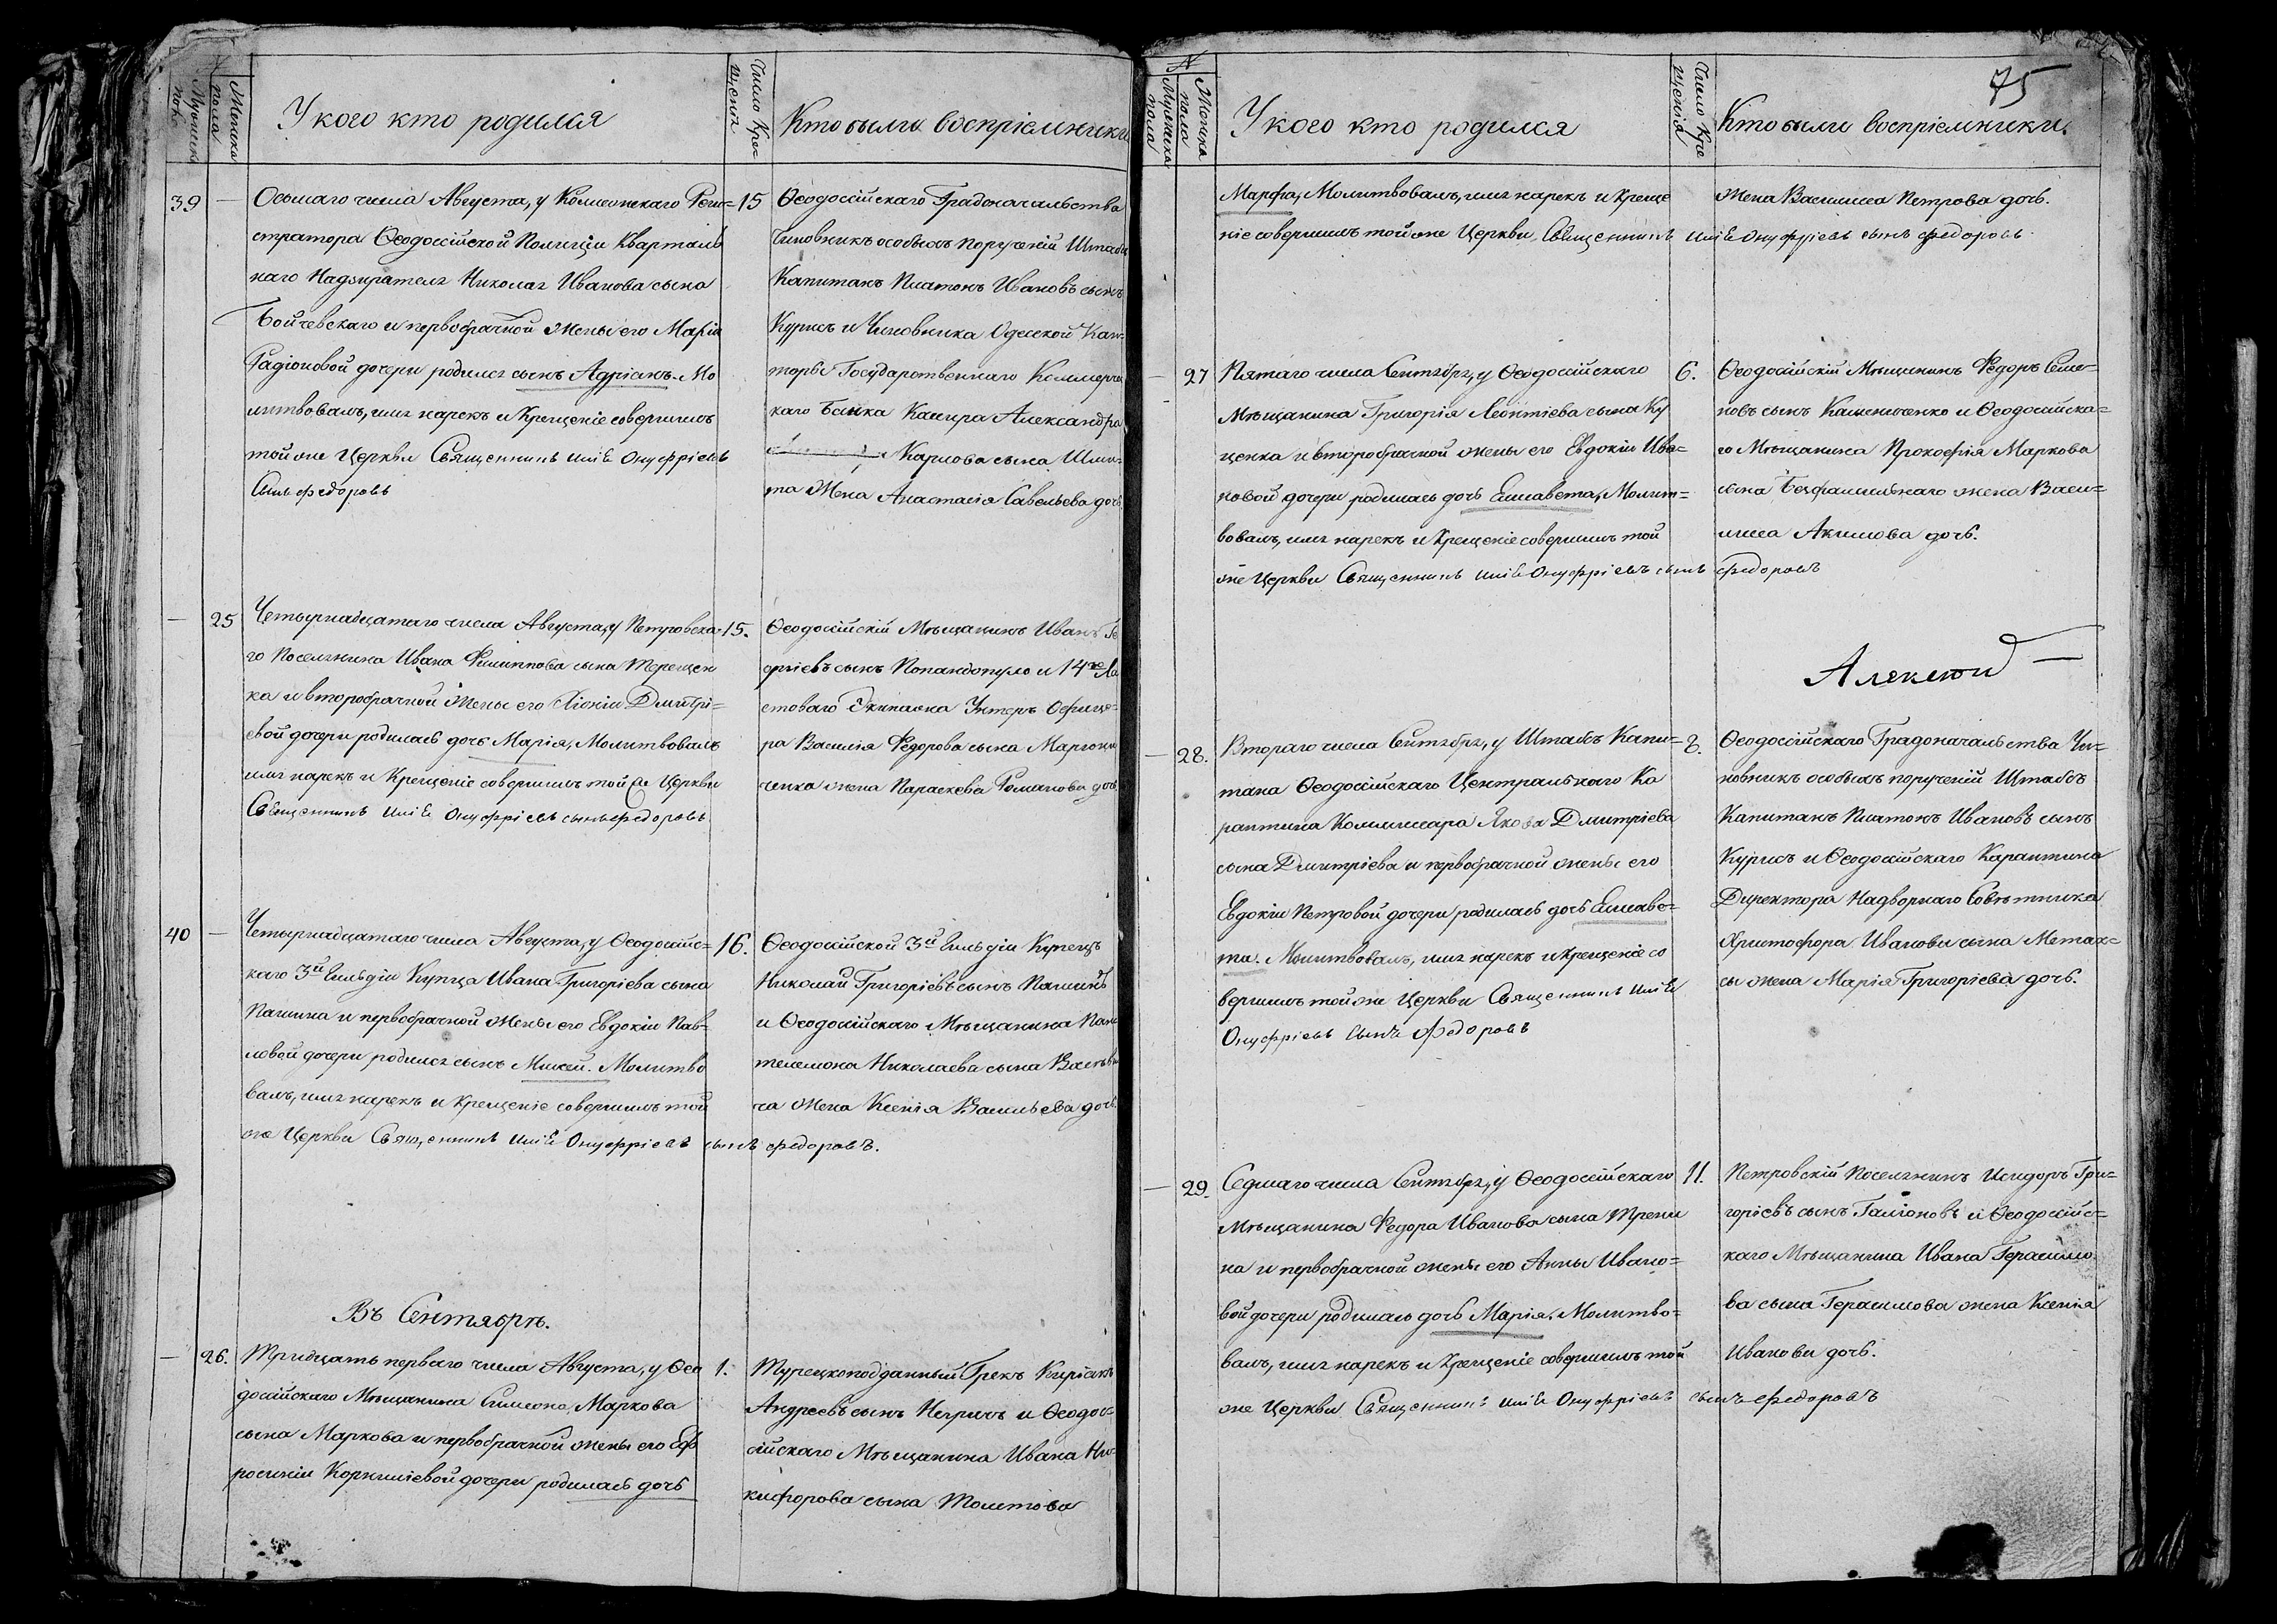 Мужеска пола
Женска пола
У кого кто родился
Число Крещенія
Кто были воспріемники
39 — Осьмаго числа Августа, у Коллежскаго Реги=
стратора Ѳеодосійской Полиціи Кварталь
наго Надзирателя Николая Иванова сына
Бойчевскаго и первобрачной жены его Маріи
Радіоновой дочери родился сынъ Адріанъ. Мо
литвовалъ, имя нарекъ и Крещеніе совершилъ
той же Церкви Священникъ Илія Онуфріевъ
Сынъ Федоровъ
15
Ѳеодосійскаго Градоначальства
Чиновникъ особыхъ порученій Штабъ
Капитанъ Платонъ Ивановъ сынъ
Курисъ и Чиновника Одесской Кан=
торы Государственнаго Коммерчес
каго Банка Касира Александра
Карлова сына Шми=
та Жена Анастасія Савельева дочь
— 25 Четырнадцатаго числа Августа, у Петровска=
го Поселянина Ивана Филиппова сына Терещен
ка и второбрачной Жены его Хіоніи Дмитрі=
евой дочери родилась дочь Марія, Молитвовалъ
имя нарекъ и Крещеніе совершилъ той же Церкви
Священникъ Илія Онуфріевъ сынъ Федоровъ
15.
Ѳеодосійскій Мѣщанинъ Иванъ Ге
оргіевъ сынъ Попандопуло и 14го Ла
стоваго Экипажа Унтеръ Офице=
ра Василія Федорова сына Мартыни
ченка жена Параскева Романова дочь
40 — Четырнадцатаго числа Августа, у Ѳеодосійс=
каго 3й Гильдіи Купца Ивана Григоріева сына
Пашина и первобрачной Жены его Евдокіи Пав=
ловой дочери родился сынъ Михей. Молитво
валъ, имя нарекъ и Крещеніе совершилъ той
же Церкви Священникъ Илія Онуфріевъ сынъ Федоровъ.
16.
Ѳеодосійской 3й Гильдіи Купецъ
Николай Григоріевъ сынъ Пашинъ
и Ѳеодосійскаго Мѣщанина Пан
телемона Николаева сына
ча Жена Ксенія Васильева дочь.
Въ Сентябрѣ.
— 26. Тридцать перваго числа Августа, у Ѳео
досійскаго Мѣщанина Симеона Маркова
сына Маркова и первобрачной жены его Еф
росиніи Корниліевой дочери родилась дочь
1.
Турецкоподданный Грекъ Киріакъ
Андреевъ сынъ и Ѳеодос=
сійскаго Мѣщанина Ивана Ни=
кифорова сына Толстова
N
Мужеска пола
Женска пола
У кого кто родился
Число Крещенія
Кто были воспріемники.
75
Марфа, Молитвовалъ, имя нарекъ и Креще
ніе совершилъ той же Церкви, Священникъ Илія Онуфріевъ сынъ Федоровъ.
Жена Василиса Петрова дочь.
— 27 Пятаго числа Сентября, у Ѳеодосійскаго
Мѣщанина Григорія Леонтіева сына Ку
ценка и второбрачной жены его Евдокіи Ива=
новой дочери родилась дочь Елисавета, Молит=
вовалъ, имя нарекъ и Крещеніе совершилъ той
же Церкви Священникъ Илія Онуфріевъ сынъ Федоровъ
6.
Ѳеодосійскій Мѣщанинъ Федоръ Семе=
новъ сынъ Каменченко и Ѳеодосійска=
го Мѣщанина Прокофія Маркова
сына Безфамильнаго жена Васи=
лиса Акимова дочь.
— 28. Втораго числа Сентября, у Штабсъ Капи=
тана Ѳеодосійскаго Центральнаго Ка
рантина Коммисара Якова Дмитріева
сына Дмитріева и первобрачной жены его
Евдокіи Петровой дочери родилась дочь Елисаве=
та. Молитвовалъ, имя нарекъ и Крещеніе со
вершилъ той же Церкви Священникъ Илія
Онуфріевъ Сынъ Федоровъ
8.
Ѳеодосійскаго Градоначальства Чи=
новникъ особыхъ порученій Штабсъ
Капитанъ Платонъ Ивановъ сынъ
Курисъ и Ѳеодосійскаго Карантина
Директора Надворнаго Совѣтника
Христофора Иванова сына Метак=
сы жена Марія Григоріева дочь.
— 29. Седмаго числа Сентября, у Ѳеодосійскаго
Мѣщанина Федора Иванова сына Трени
на и первобрачной жены его Анны Ивано=
вой дочери родилась дочь Марія. Молитво=
валъ, имя нарекъ и Крещеніе совершилъ той
же Церкви Священникъ Илія Онуфріевъ сынъ Федоровъ
11.
Петровскій Поселянинъ Исидоръ Гри=
горіевъ сынъ Галіоновъ и Ѳеодосійс=
каго Мѣщанина Ивана Герасимо
ва сына Герасимова жена Ксенія
Иванова дочь.